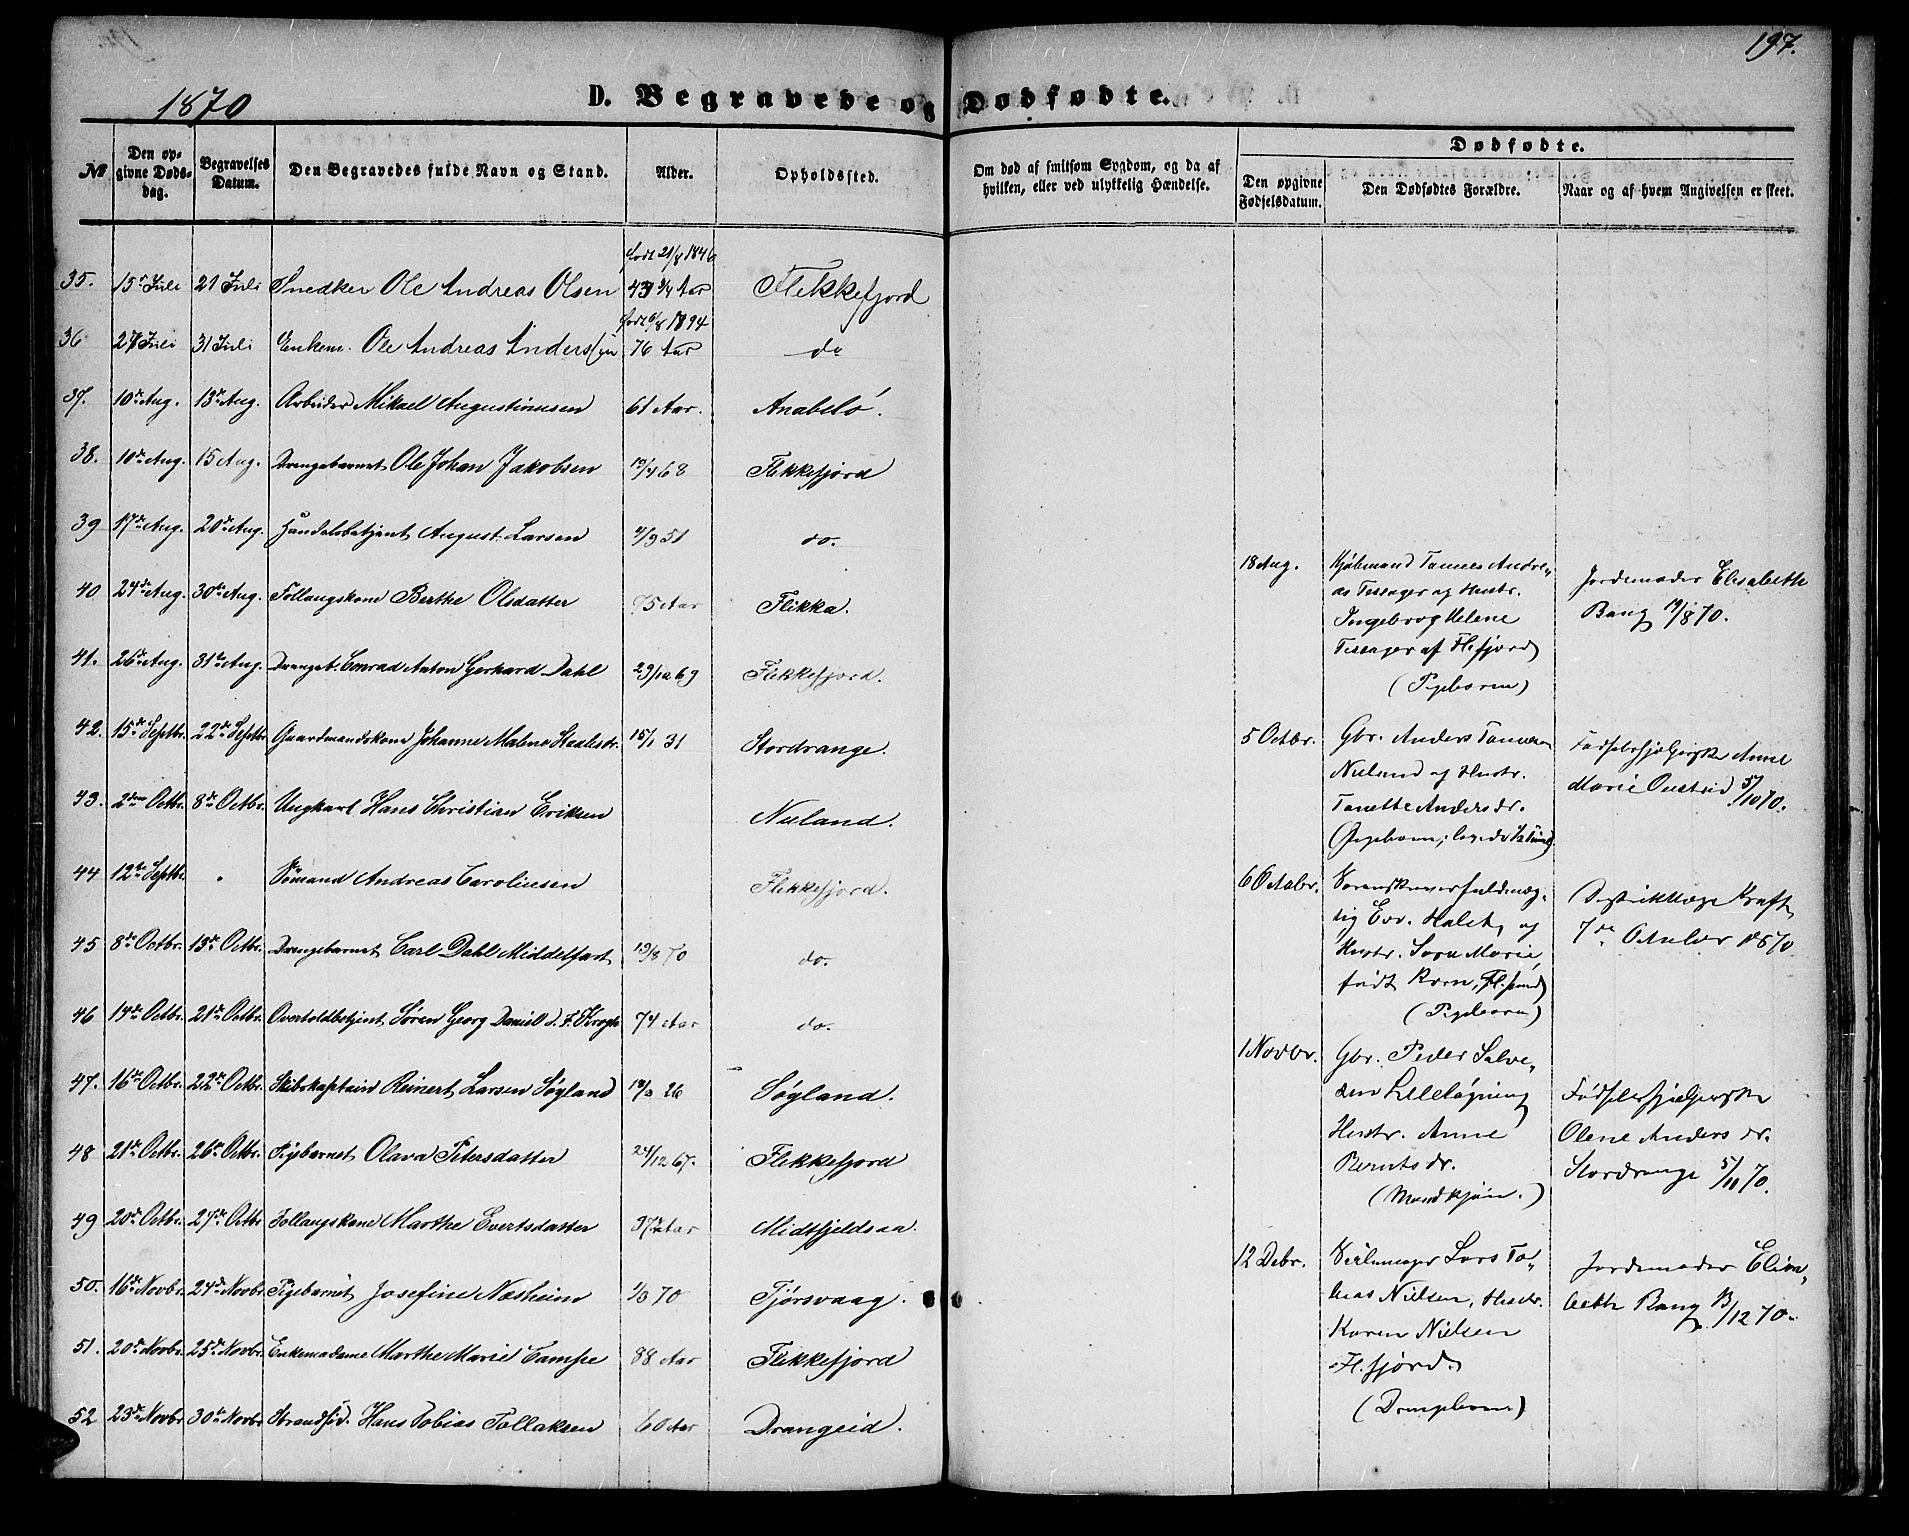 197.
1870
D. Begravede og Dødfødte.
№
Den opgivne Dødsdag.
Begravelses Datum.
Den Begravedes fulde Navn og Stand.
Alder.
Opholdssted.
Om død af smitsom Sygdom, og da af hvilken, eller ved ulykkelig Hændelse.
Dødfødte.
Den opgivne Fødselsdatum.
Den Dødfødtes Forældre.
Naar og af hvem Angivelsen er skeet.
35. 15 Juli 21 Juli Snedker Ole Andreas Olsen født 21/8 1846 Aar Flekkefjord
36 27 Juli 31 Juli Enkem. Ole Andreas Anderssen født 6/8 1794 76 Aar do
37. 10de Aug. 13de Aug. Arbeider Mikael Augustinusen 61 Aar. Anabelø.
38. 10de Aug. 15 Aug. Drengebarnet Ole Johan Jakobsen 19/4 68 Flekkefjord
39 17de Aug. 20de Aug. Handelsbetjent August Larsen 4/9 51 do.
40 24de Aug. 30te Aug. Føllaugskone Berthe Olsdatter 75 Aar Flikka.
41. 26de Aug. 31te Aug. Drengeb. Conrad Anton Gerhard Dahl 29/12 69 Flekkefjord.
42. 15de Septbr. 22de Septbr. Gaardmandskone Johanne Malene Staalesdr. 15/1 31 Stordrange.
43. 2den Octbr. 8de Octbr. Ungkarl Hans Christian Eriksen Nuland.
44 12te Septbr. " Sømand Andreas Carolinsen Flekkefjord.
45 8de Octbr. 13de Octbr. Drengebarnet Carl Dahl Middelfart 19/8 70 do.
46 14de Octbr. 21de Octbr. Overtoldbetjent Søren Georg Daniel d. F. Krogh 74 Aar do.
47. 16de Octbr. 22de Octbr. Skibskaptain Reinert Larsen Søyland 26 Søyland.
48 21de Octbr. 26de Octbr. Pigebarnet Olava Petersdatter 24/12 67. Flekkefjord
49 20de Octbr. 27de Octbr Føllaugskone Marthe Evertsdatter Aar Midtfjeldsaa.
50. 16de Novbr. 24de Novbr. Pigebarnet Josefine Næsheim 70 Tjørsvaag.
51. 20de Novbr. 25de Novbr. Enkemadame Marthe Marie Campe 88 Aar Flekkefjord
52 23de Novbr. 30te Novbr. Strandsid. Hans Tobias Tollaksen 60 Aar Drangeid.
18 Aug.
Kjøbmand Tønnes Andre-
as Tessager og Hustr.
Ingeborg Helene
Tessager af Fl.fjord
(Pigebarn)
Jordemoder Elisabeth
Bang 19/8 70.
5 Octbr.
Gbr. Anders Tønnesen
Nuland og Hustr.
Tonette Andersdr.
(Pigebarn;
Fødselshjælperske Anne
Marie 5/10 70.
6 Octobr.
Sorenskriverfuldmæg-
tig Evr. Halck og
Hustr. Sara Marie,
født Korn, Fl.fjord
(Pigebarn)
Distriktslæge Kraft
7de October 1870
1 Novbr.
Gbr. Peder Salve-
sen Lilleløgning
Hustr. Anne
Berntsdr.
(Mandkjøn.)
Fødselshjælperske
Olene Andersdr.
Stordrange 5/11 70.
12 Debr.
Seilmager Lars To-
bias Nielsen, Hustr.
Karen Nielsen
Fl.fjord.
(Drengebarn)
Jordemoder Elisa-
beth Bang 13/12 70.